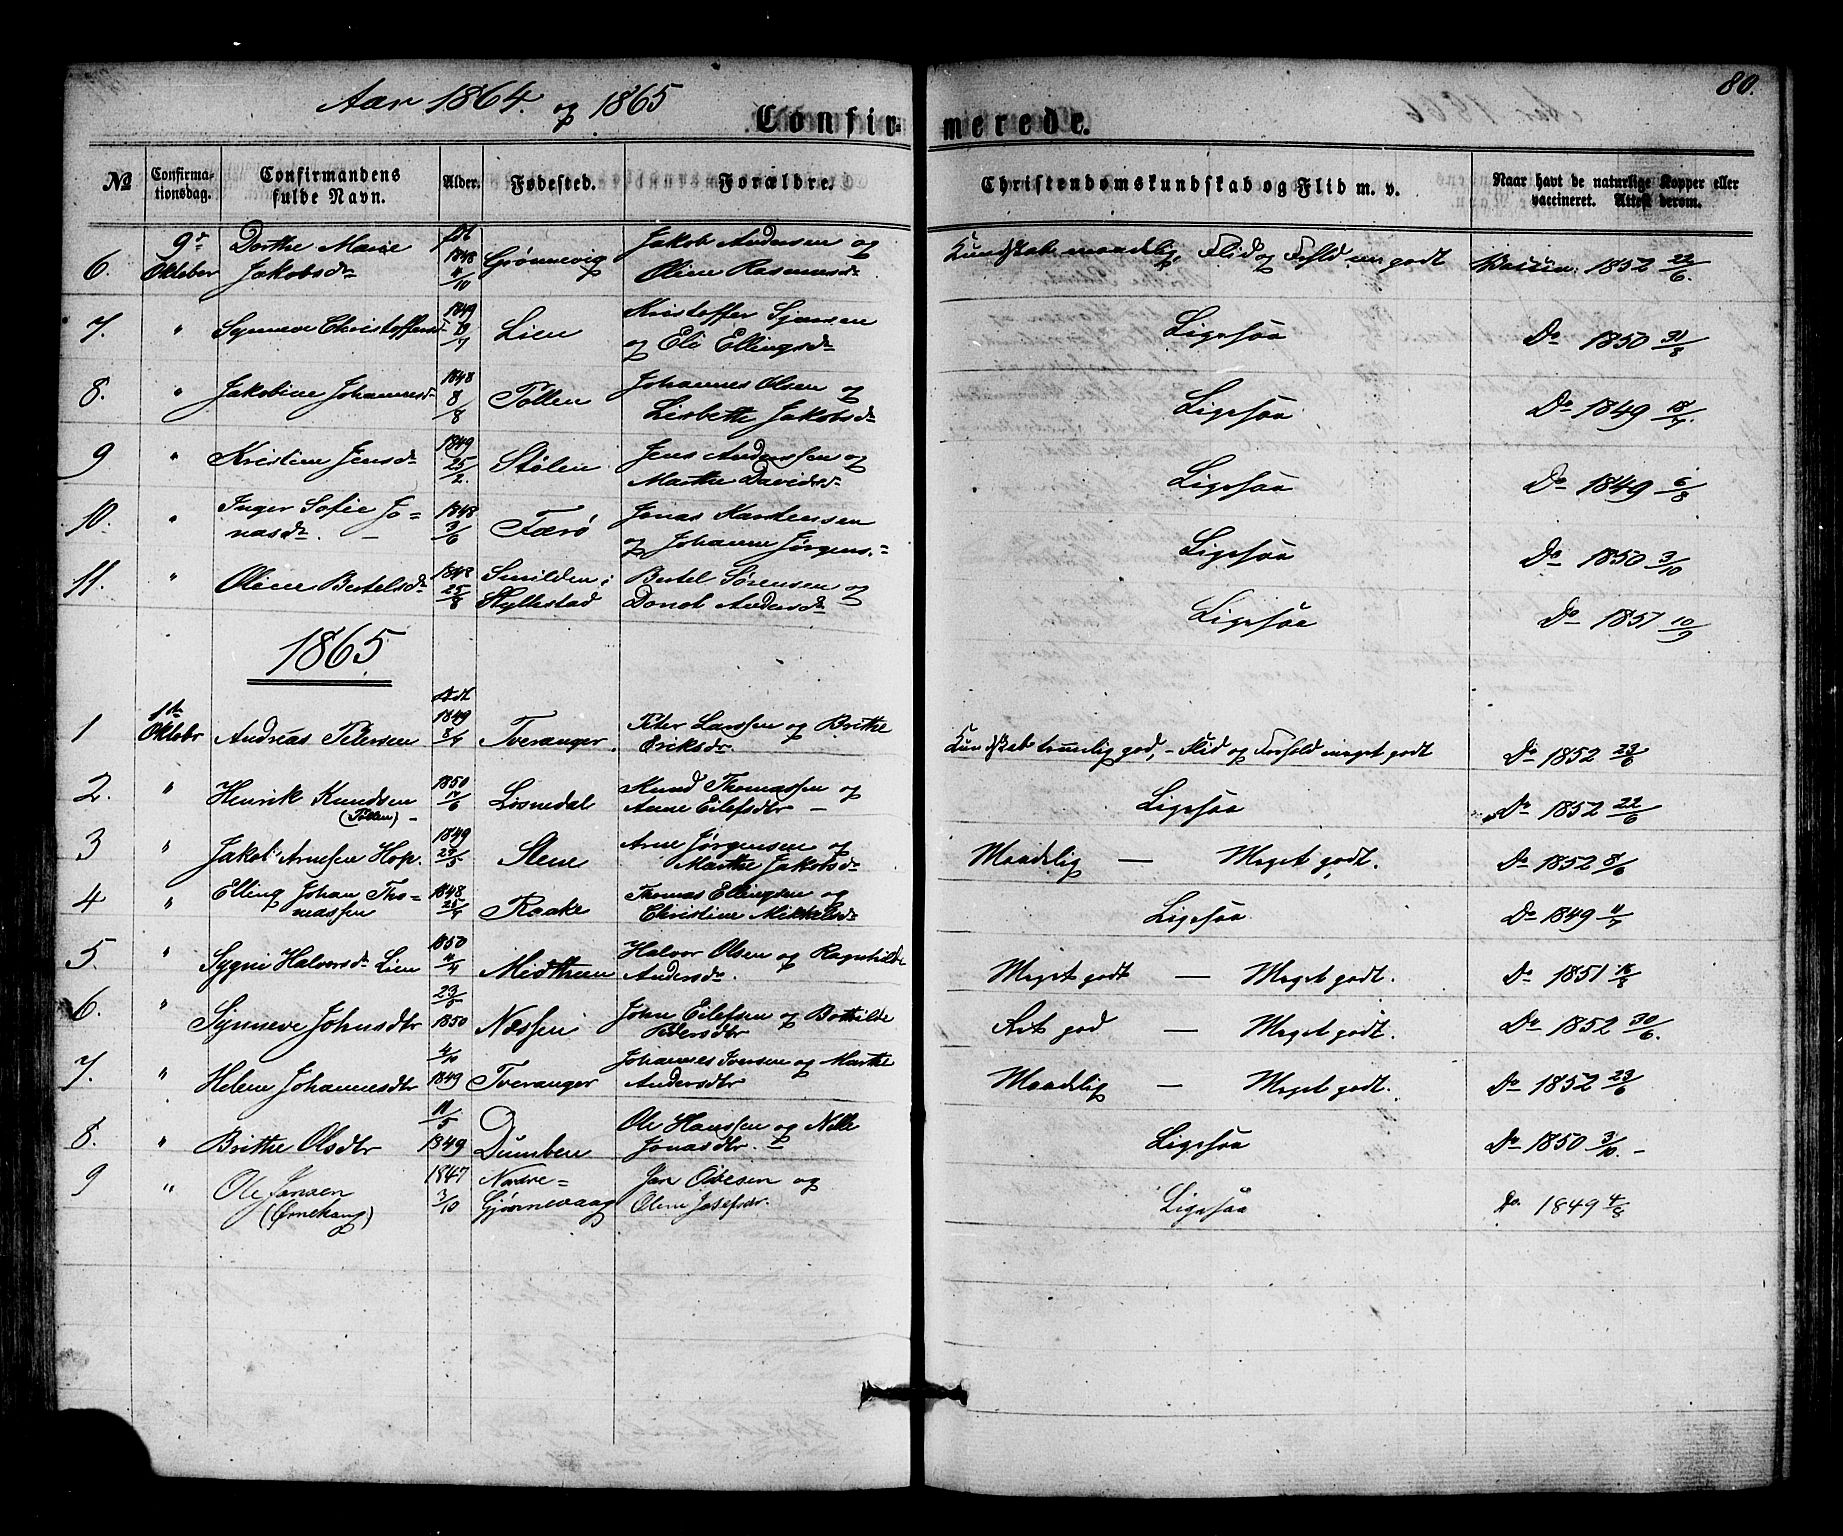 Aar 1864. og 1865
80.
Confir- merede.
No Confirma-tionsdag. Confirmandens fulde Navn. Alder. Fødested. Forældre. Christendomskundskab og Flid m. v. Naar havt de naturlige Kopper eller vaccineret. Attest derom.
6. 9de Oktober Dorthe Marie Jakobsdr fdt 1848 11/10 Grønnevig Jakob Andersen og Oline Rasmusdr Kundskab maadelig, Flid og Forhld godt Vaccin. 1852 22/6.
7. " Synneve Christoffersdr 1849 Lien Kristoffer Sjursen og Eli Ellingsdr Ligesaa Do 1850 31/8
8. " Jakobine Johannesdr 1848 8/8 Tollen Johannes Olsen og Lisbette Jakobsdr Ligesaa Do 1849 18/7.
9 " Kristine Jensdr 1849 25/2. Stølen Jens Anderssen og Marthe Davidsdr Ligesaa Do 1849 6/8
10. " Inger Sofie Jo=nasdr. 1848 3/6 Færø Jonas Karstensen og Johanne Jørgens.= Ligesaa Do 1850 3/10
11. " Oline Bertelsdr 1848 25/8 Smilden i Hyllestad Bertel Sørensen og Donot Andersdr Ligesaa Do 1851 10/9
1865.
1 1ste Oktobr Andreas Petersen fdt 1849 8/4 Tveranger. Peter Larssen og Brithe Eriksdr. Kundskab temmelig god, - Flid og Forhold meget godt Do 1852 23/6
2. " Henrik Knudsen (Tollen) - 1850 17/6 Losnedal Knud Thomassen og Anne Eilefsdtr - Ligesaa Do 1852 22/6
3 " Jakob Arnesen Hop. 1849 29/5 Stene Arne Jørgensen og Marthe Jakobsdr Maadelig - Meget godt. Do 1852 8/6
4 " Elling Johan Tho=massen 1848 25/4 Raake Thomas Ellingsen og Christine Mikkelsdr Ligesaa Do 1849 11/7
5. " Sygni Halvorsdr Lien 1850 11/4 Midtheen Halvor Olsen og Ragnhilde Andersdr. Meget godt - Meget godt. Do 1851 18/8
6. " Synneve Johnsdtr 23/5 1850 Nessen John Eilefsen og Bothilde Pedersdtr Ret god - Meget godt. Do 1852 30/6.
7. " Helene Johannesdtr 4/10 1849 Tveranger Johannes Iversen og Marthe Andersdtr Maadelig - Meget godt. Do 1852 23/6
8. " Brithe Olsdtr 11/5 1849 Dumben Ole Hanssen og Nille Jonasdtr. - Ligesaa Do 1850 3/10. -
9 " Ole Jansen (Ørnehaug) 1847 3/10 Nordre=Gjørnevaag Jan Olsen og Oline Josefsdr. Ligesaa Do. 1849 4/8